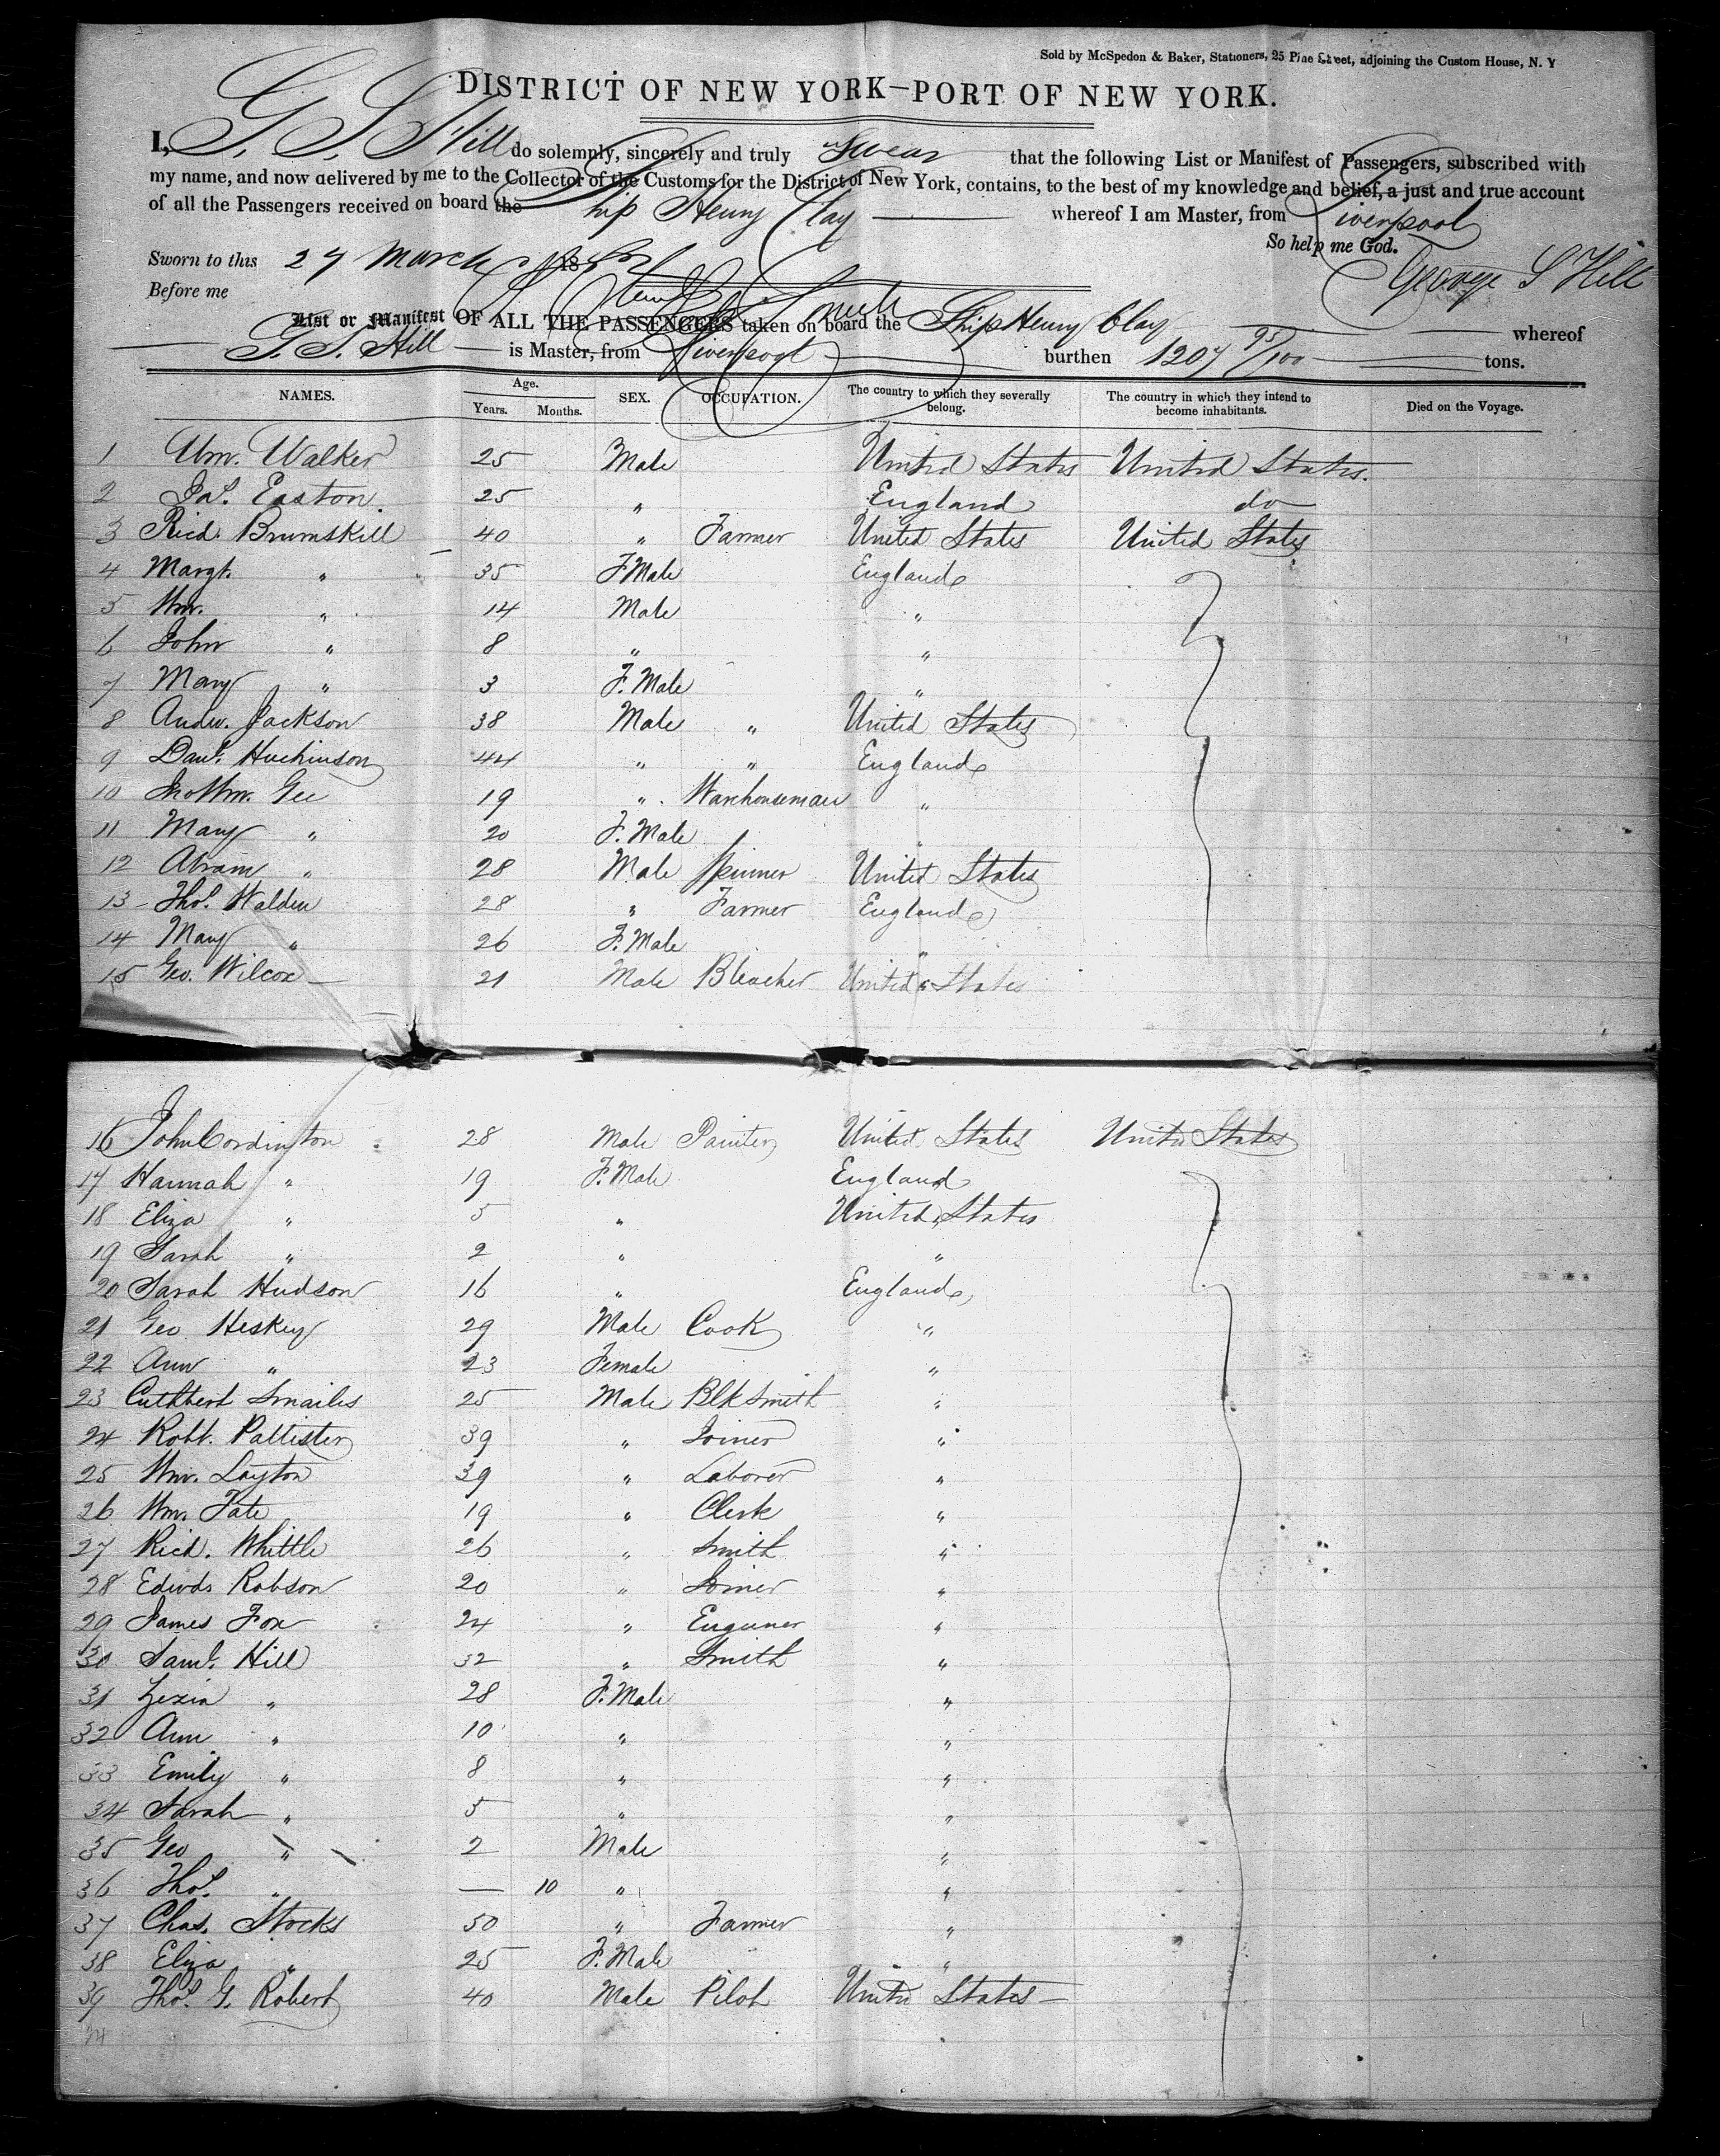 Sold by McSpedon & Baker, Stationers, 25 Pine Street, adjoining the Custom House, N. Y
DISTRICT OF NEW YORK—PORT OF NEW YORK.
I, G. S. Hill do solemnly, sincerely and truly Swear that the following List or Manifest of Passengers, subscribed with
my name, and now delivered by me to the Collector of the Customs for the District of New York, contains, to the best of my knowledge and belief, a just and true account
of all the Passengers received on board the Ship Henry Clay whereof I am Master, from Liverpool
So help me God.
Sworn to this 27 March 18
George S Hill
Before me
List or Manifest OF ALL THE PASSENGERS taken on board the Ship Henry Clay whereof
G. S. Hill is Master, from Liverpool burthen 1207 95/100 tons.
NAMES. Age. Years. Months. SEX. OCCUPATION. The country to which they severally belong. The country in which they intend to become inhabitants. Died on the Voyage.
1 Wm. Walker 25 Male United States United States.
2 Jas. Easton. 25 " England do
3 Ricd. Brumskill 40 " Farmer United States United States
4 Margt. " 35 F Male England
5 Wm. " 14 Male "
6 John " 8 " "
7 Mary " 3 F. Male "
8 Andw. Jackson 38 Male " United States
9 Danl. Huchinson 44 " " England
10 Jno Wm. Gee 19 " Warehouseman "
11 Mary " 20 F. Male "
12 Abram " 28 Male Spinner United States
13 Thos. Walden 28 " Farmer England
14 Mary " 26 F. Male "
15 Geo. Wilcox 21 Male Bleacher United States
16 John Cordington 28 Male Painter United States United States
17 Hannah " 19 F. Male England
18 Eliza " 5 " United States
19 Sarah " 2 " "
20 Sarah Hudson 16 " England
21 Geo Heskey 29 Male Cook "
22 Ann " 23 Female "
23 Cuthbert Smailes 25 Male Blk Smith "
24 Robt. Pallister 39 " Joiner "
25 Wm. Layton 39 " Laborer "
26 Wm. Tate 19 " Clerk "
27 Ricd. Whittle 26 " Smith "
28 Edwd. Robson 20 " Joiner "
29 James Fox 24 " Enginner "
30 Saml. Hill 32 " Smith "
31 " 28 F. Male "
32 Ann " 10 " "
33 Emily " 8 " "
34 Sarah " 5 " "
35 Geo " 2 Male "
36 Thos. " — 10 " "
37 Chas. Stocks 50 " Farmer "
38 Eliza " 25 F. Male "
39 Thos. G. Robert 40 Male Pilot United States